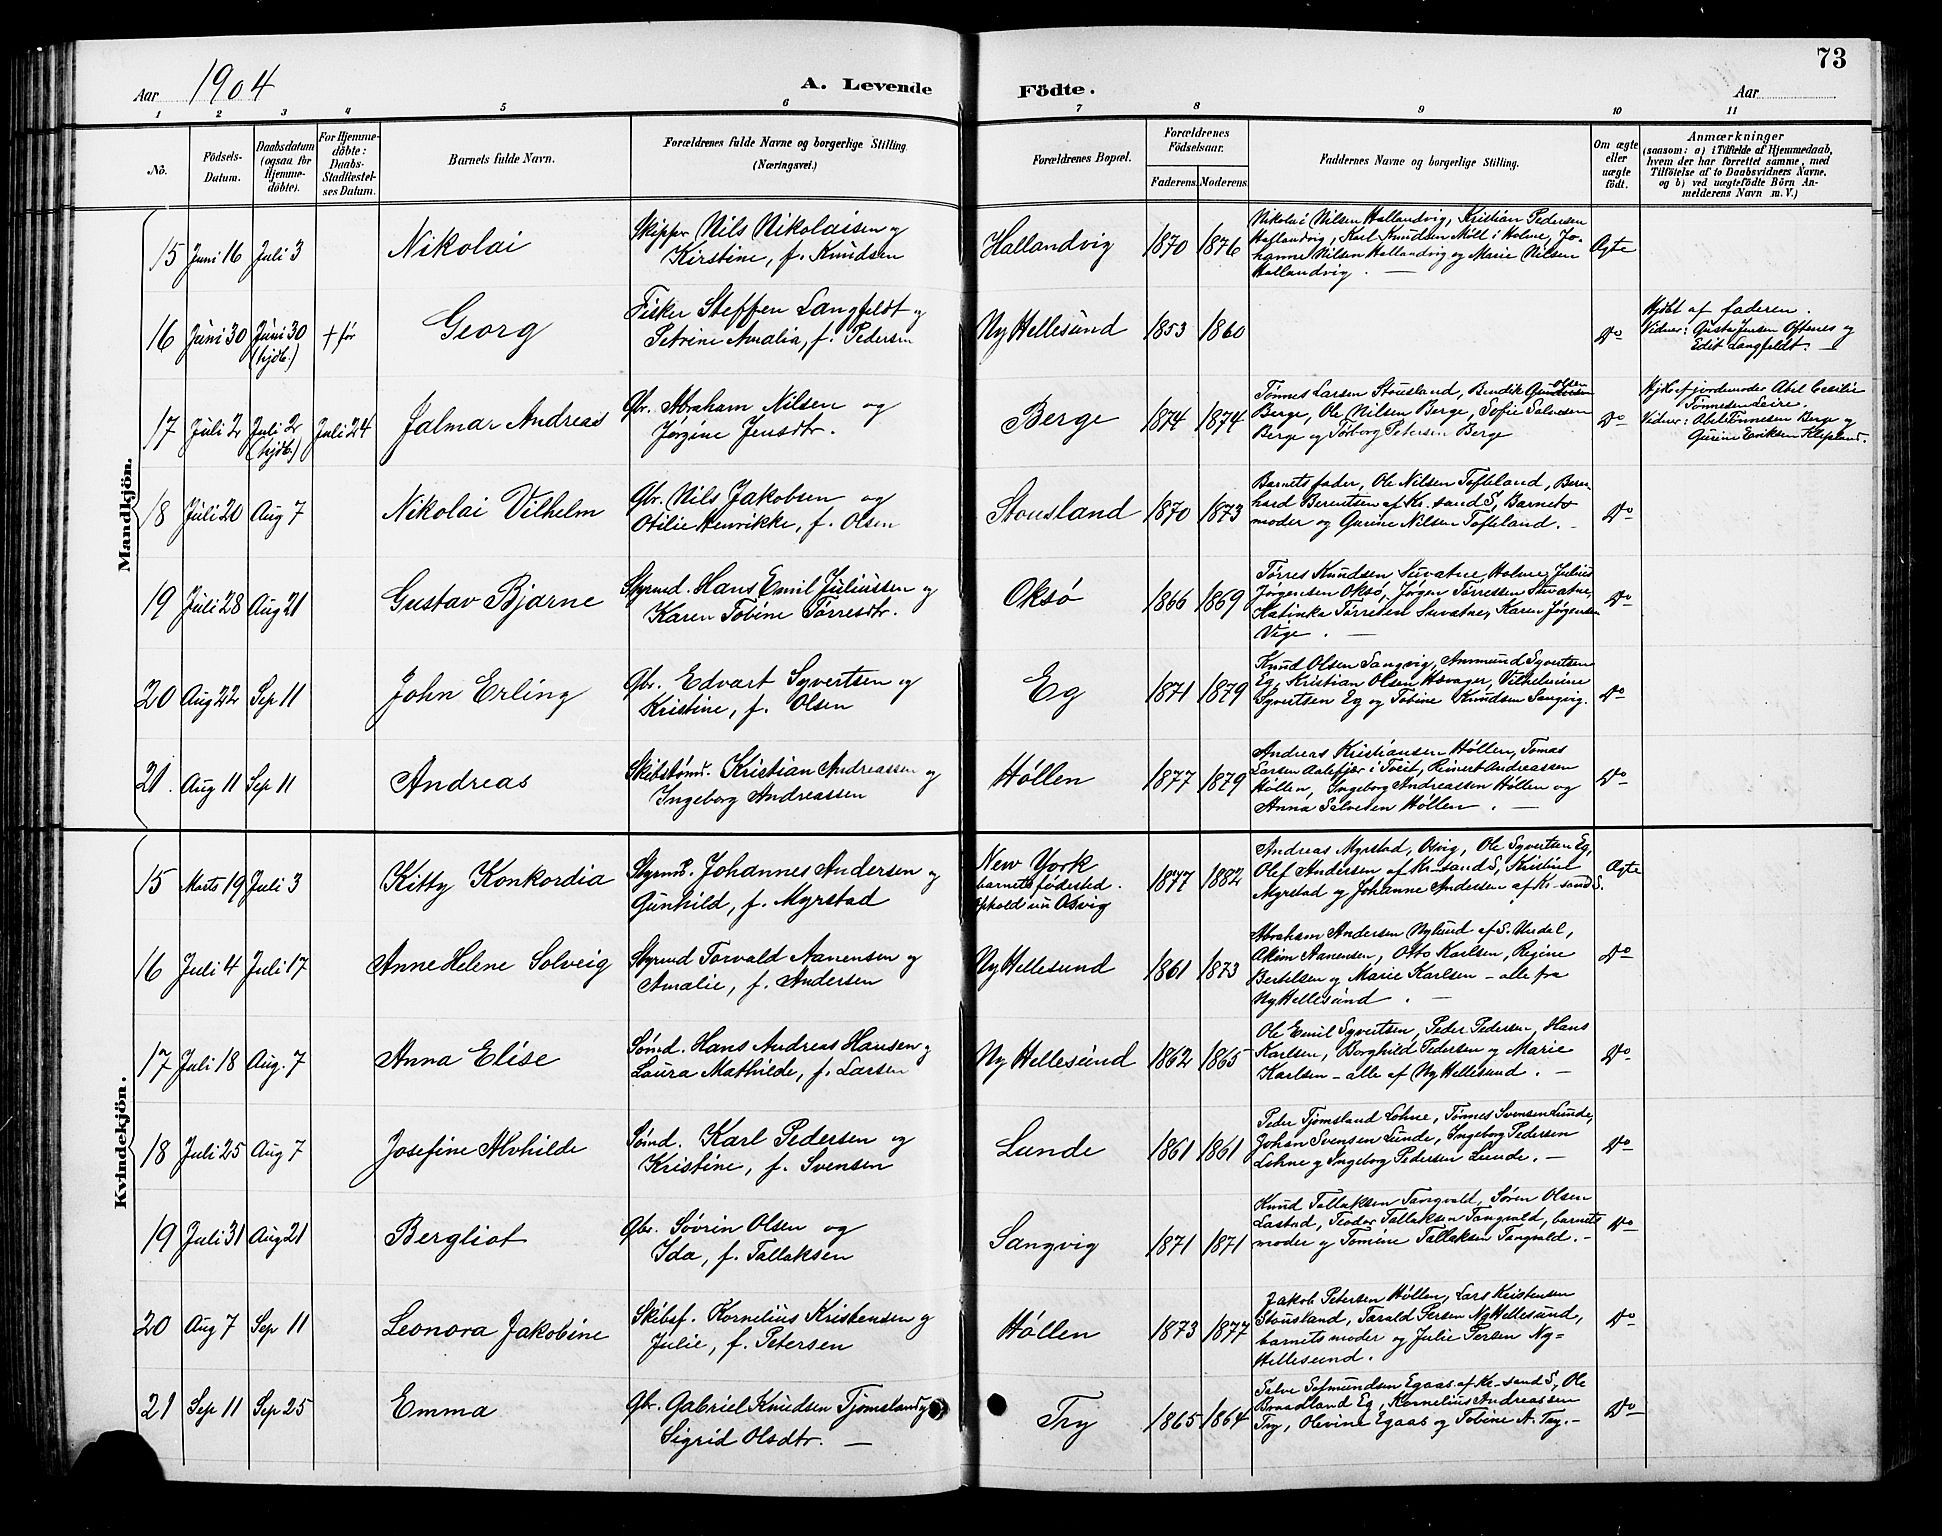 73
Aar 1904
A. Levende
Födte.
Aar
1 2 3 4 5 6 7 8 9 10 11
No.
Födsels-
Datum.
Daabsdatum
(ogsaa for
Hjemme-
döbte).
For Hjemme-
döbte:
Daabs-
Stadfestel-
ses Datum.
Barnets fulde Navn.
Forældrenes fulde Navne og borgerlige Stilling
(Næringsvei.)
Forældrenes Bopæl.
Forældrenes
Födselsaar.
Faderens. Moderens.
Faddernes Navne og borgerlige Stilling.
Om ægte
eller
uægte
födt.
Anmærkninger
(saasom: a) i Tilfælde af Hjemmedaab,
hvem der har forrettet samme, med
Tilföielse af to Daabsvidners Navne,
og b) ved uægtefödte Börn An-
melderens Navn m. V.)
Mandkjön.
15 Juni 16 Juli 3
Nikolai
Skipper Nils Nikolaisen og
Kirstine, f. Knudsen
Hallandvig
1870 1876
Nikolai Nilsen Hallandvig, Kristian Pedersen
Hallandvig, Karl Knudsen Möll i Holme, Jo-
hanne Nilsen Hallandvig og Marie Nilsen
Hallandvig. —
Ægte
16 Juni 30 Juni 30
(hjdb.)
+ før
Georg
Fisker Steffen Langfeldt og
Petrine Amalia, f. Pedersen
Ny Hellesund
1853 1860
Do
Hjdbt af faderen.
Vidner: Gusta Jensen Oftenes og
Edit Langfeldt. —
17 Juli 2 Juli 2
(hjdb.)
Juli 24
Jalmar Andreas
Gbr. Abraham Nilsen og
Jørgine Jensdtr.
Berge
1874 1874
Tønnes Larsen Stousland, Bendik Olsen
Berge, Ole Nilsen Berge, Sofie Salvesen
Berge og Torborg Petersen Berge
Do
Hjdb. af jordemoder Abel Cecilie
Tønnesen Leire.
Vidner: Abel Tønnesen Berge og
Gurine Eriksen Klepland.
18 Juli 20 Aug 7
Nikolai Vilhelm
Gbr. Nils Jakobsen og
Otilie Henrikke, f. Olsen
Stousland
1870 1873
Barnets fader, Ole Nilsen Tofteland, Bern-
hard Berentsen af Kr.sand S, Barnets
moder og Gurine Nilsen Tofteland. -
Do
19 Juli 28 Aug 21
Gustav Bjarne
Styrmd. Hans Emil Juliussen og
Karen Tobine Tørresdtr.
Oksø
1866 1869
Tørres Knudsen Suvatne, Holme, Julius
Jørgensen Oksø, Jørgen Tørressen Suvatne,
Katinka Tørresen Suvatne, Karen Jørgensen
Vige. —
Do
20 Aug 22 Sep 11
John Erling
Gbr. Edvart Syvertsen og
Kristine, f. Olsen
Eg
1871 1879
Knud Olsen Sangvig, Anmund Syvertsen
Eg, Kristian Olsen Hovager, Vilhelmine
Syvertsen Eg og Tobine Knudsen Sangvig.
Do
21. Aug 11 Sep 11
Andreas
Skibstømr. Kristian Andreassen og
Ingeborg Andreassen
Höllen
1877 1879
Andreas Kristiansen Höllen, Tomas
Larsen Aalefjær i Tveit, Reinert Andreassen
Höllen, Ingeborg Andreassen Höllen og
Anna Salvesen Höllen. —
Do
Kvindekjön.
15 Marts 19 Juli 3
Kitty Konkordia
Styrmd. Johannes Andersen og
Gunhild, f. Myrstad
New York
barnets fødested.
Ophold nu Osvig
1877 1882
Andreas Myrstad, Osvig, Ole Syvertsen Eg,
Olef Andersen af Kr-sand S, Kristine
Myrstad og Johanne Andersen af Kr-sand S.
Ægte
16 Juli 4 Juli 17
Anne Helene Solveig
Styrmd Torvald Aanensen og
Amalie, f. Andersen
Ny Hellesund
1861 1873
Abraham Andersen Nylund af S. Undal,
Akim Aanensen, Otto Karlsen, Regine
Bertelsen og Marie Karlsen - alle fra
Ny Hellesund. —
Do
17 Juli 18 Aug. 7
Anna Elise
Sømd. Hans Andreas Hansen og
Laura Mathilde, f. Larsen
Ny Hellesund
1862 1865
Ole Emil Syvertsen, Peder Pedersen, Hans
Karlsen, Borghild Pedersen og Marie
Karlsen - alle af Ny Hellesund. —
Do
18 Juli 25 Aug 7
Josefine Alvhilde
Sømd. Karl Pedersen og
Kristine, f. Svensen
Lunde
1861 1861
Peder Tjomsland Lohne, Tønnes Svensen Lunde,
Johan Svensen Lunde, Ingeborg Pedersen
Lohne og Ingeborg Pedersen Lunde. —
Do
19 Juli 31 Aug 21
Bergliot
Gbr. Søvrin Olsen og
Ida, f. Tallaksen
Sangvig
1871 1871
Knud Tallaksen Tangvald, Søren Olsen
Lastad, Teodor Tallaksen Tangvald, barnets
moder og Tomine Tallaksen Tangvald. -
Do
20 Aug 7 Sep 11
Leonora Jakobine
Skibsf. Kornelius Kristensen og
Julie, f. Petersen
Höllen
1873 1877
Jakob Petersen Höllen, Lars Kristensen
Stousland, Tarald Persen Ny Hellesund,
barnets moder og Julie Persen Ny-
Hellesund.
Do
21 Sep 11 Sep 25
Emma
Gbr. Gabriel Knudsen Tjomsland og
Sigrid Olsdtr. —
Try
1865 1864
Salve Salmundsen Egaas af Kr-sand S, Ole
Braadland Eg, Kornelius Andreassen
Try, Olevine Egaas og Tobine A. Try. -
Do